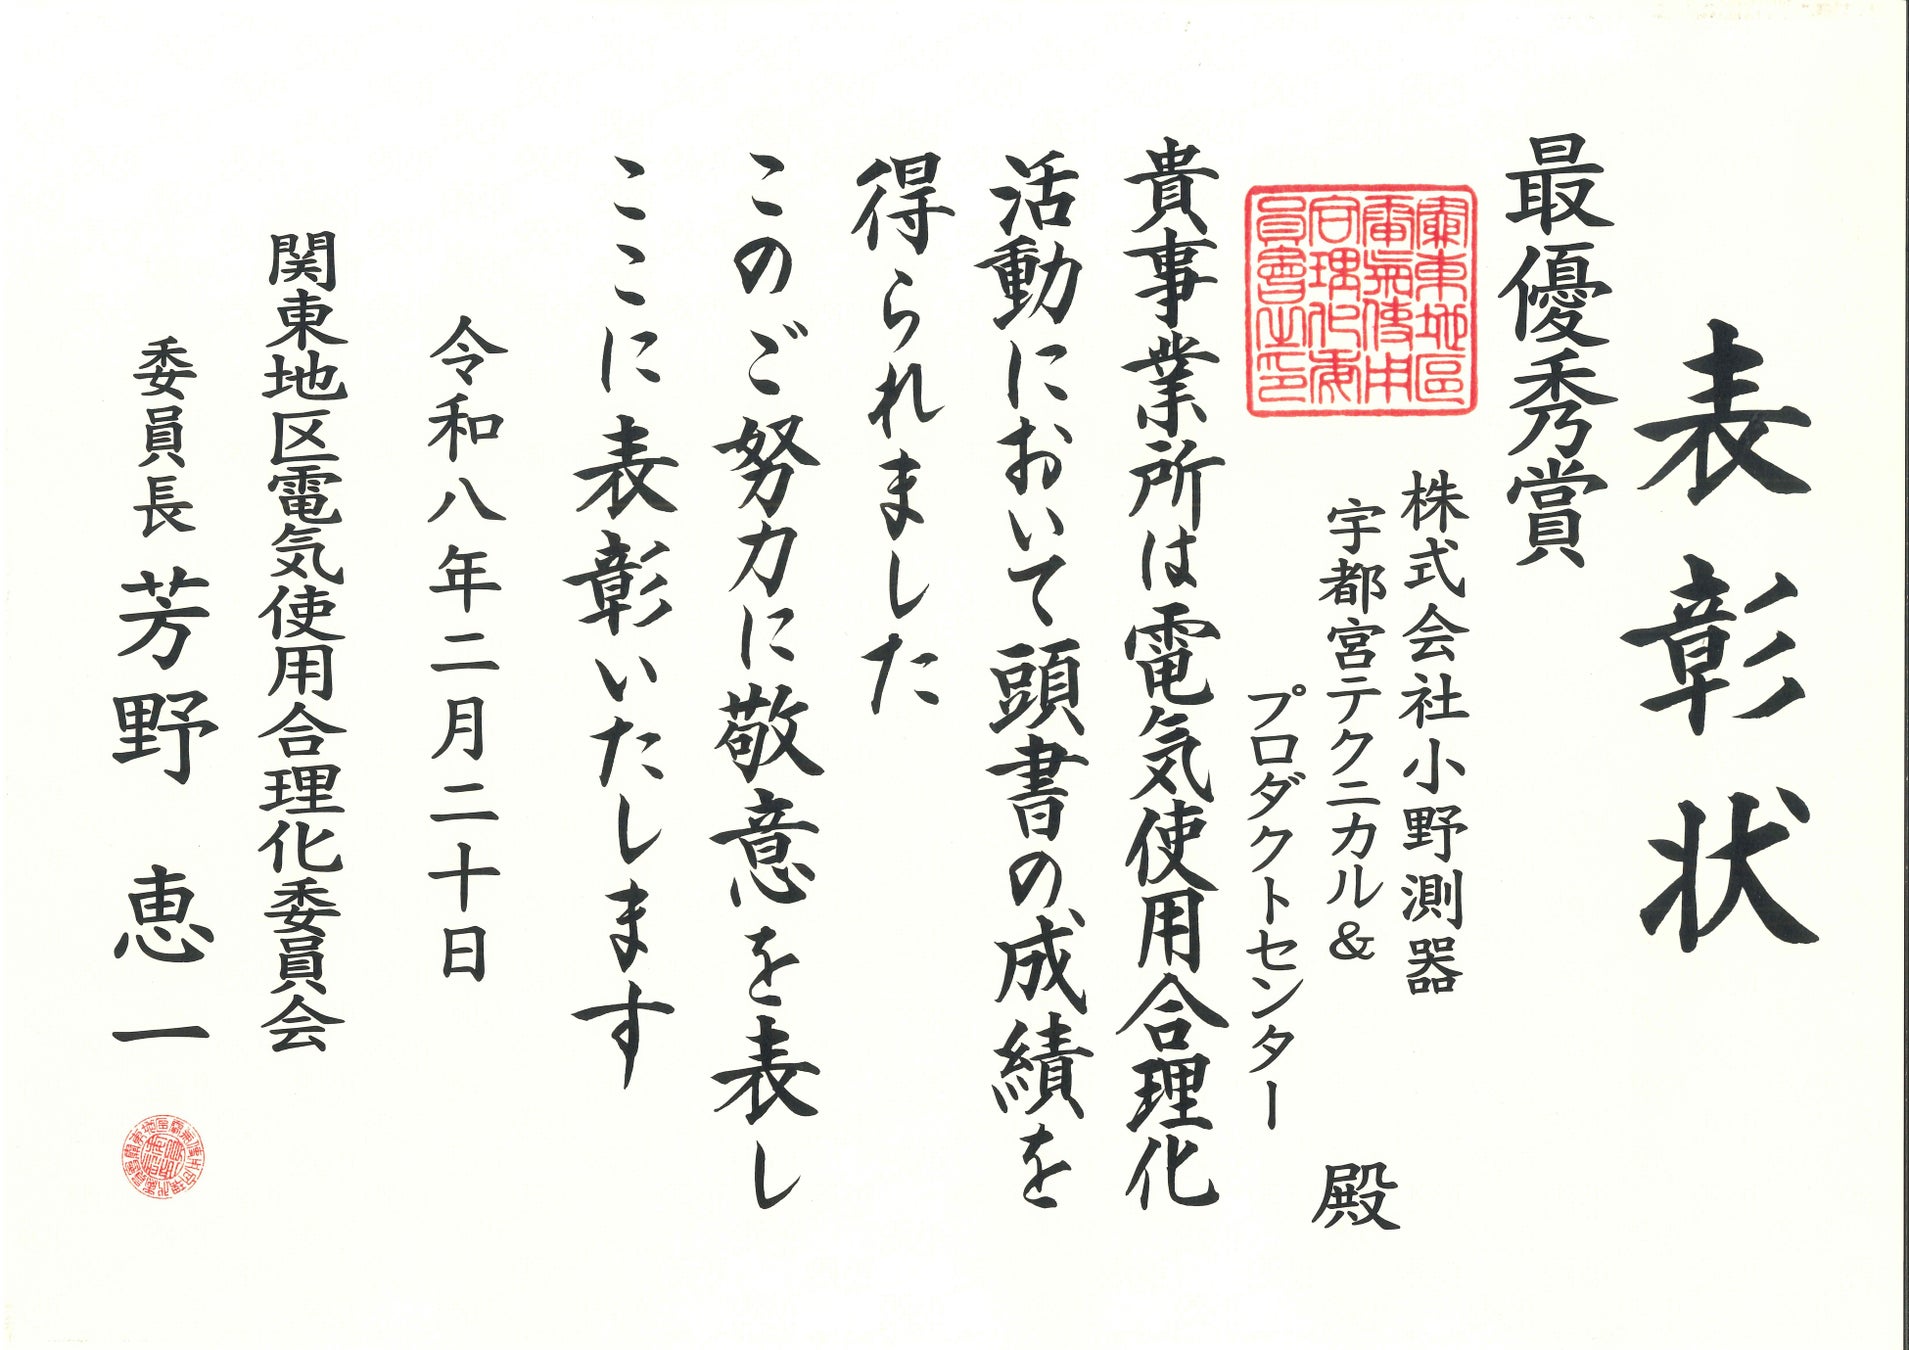 表彰状
最優秀賞
株式会社小野測器
宇都宮テクニカル&
プロダクトセンター
殿
貴事業所は電気使用合理化
活動において頭書の成績を
得られました
このご努力に敬意を表し
ここに表彰いたします
令和八年二月二十日
関東地区電気使用合理化委員会
委員長 芳野 恵一